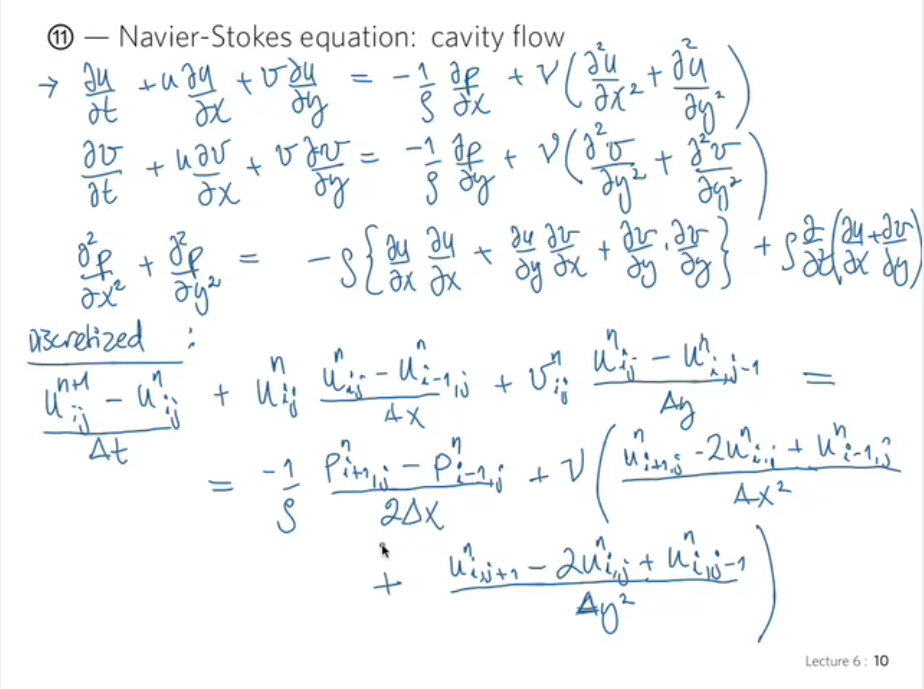 ⑪ — Navier-Stokes equation: cavity flow
→ ∂u/∂t + u ∂u/∂x + v ∂u/∂y = -1/ρ ∂p/∂x + ν(∂²u/∂x² + ∂²u/∂y²)
∂v/∂t + u ∂v/∂x + v ∂v/∂y = -1/ρ ∂p/∂y + ν(∂²v/∂y² + ∂²v/∂y²)
∂²p/∂x² + ∂²p/∂y² = -ρ{∂u/∂x ∂u/∂x + ∂u/∂y ∂v/∂x + ∂v/∂y · ∂v/∂y} + ρ ∂/∂t(∂u/∂x + ∂v/∂y)
Discretized :
(uⁿ⁺¹ᵢⱼ - uⁿᵢⱼ)/Δt + uⁿᵢⱼ (uⁿᵢ,ⱼ - uⁿᵢ₋₁,ⱼ)/Δx + vⁿᵢⱼ (uⁿᵢ,ⱼ - uⁿᵢ,ⱼ₋₁)/Δy =
= -1/ρ (pⁿᵢ₊₁,ⱼ - pⁿᵢ₋₁,ⱼ)/2Δx + ν((uⁿᵢ₊₁,ⱼ - 2uⁿᵢ,ⱼ + uⁿᵢ₋₁,ⱼ)/Δx²
+ (uⁿᵢ,ⱼ₊₁ - 2uⁿᵢ,ⱼ + uⁿᵢ,ⱼ₋₁)/Δy²)
Lecture 6 : 10